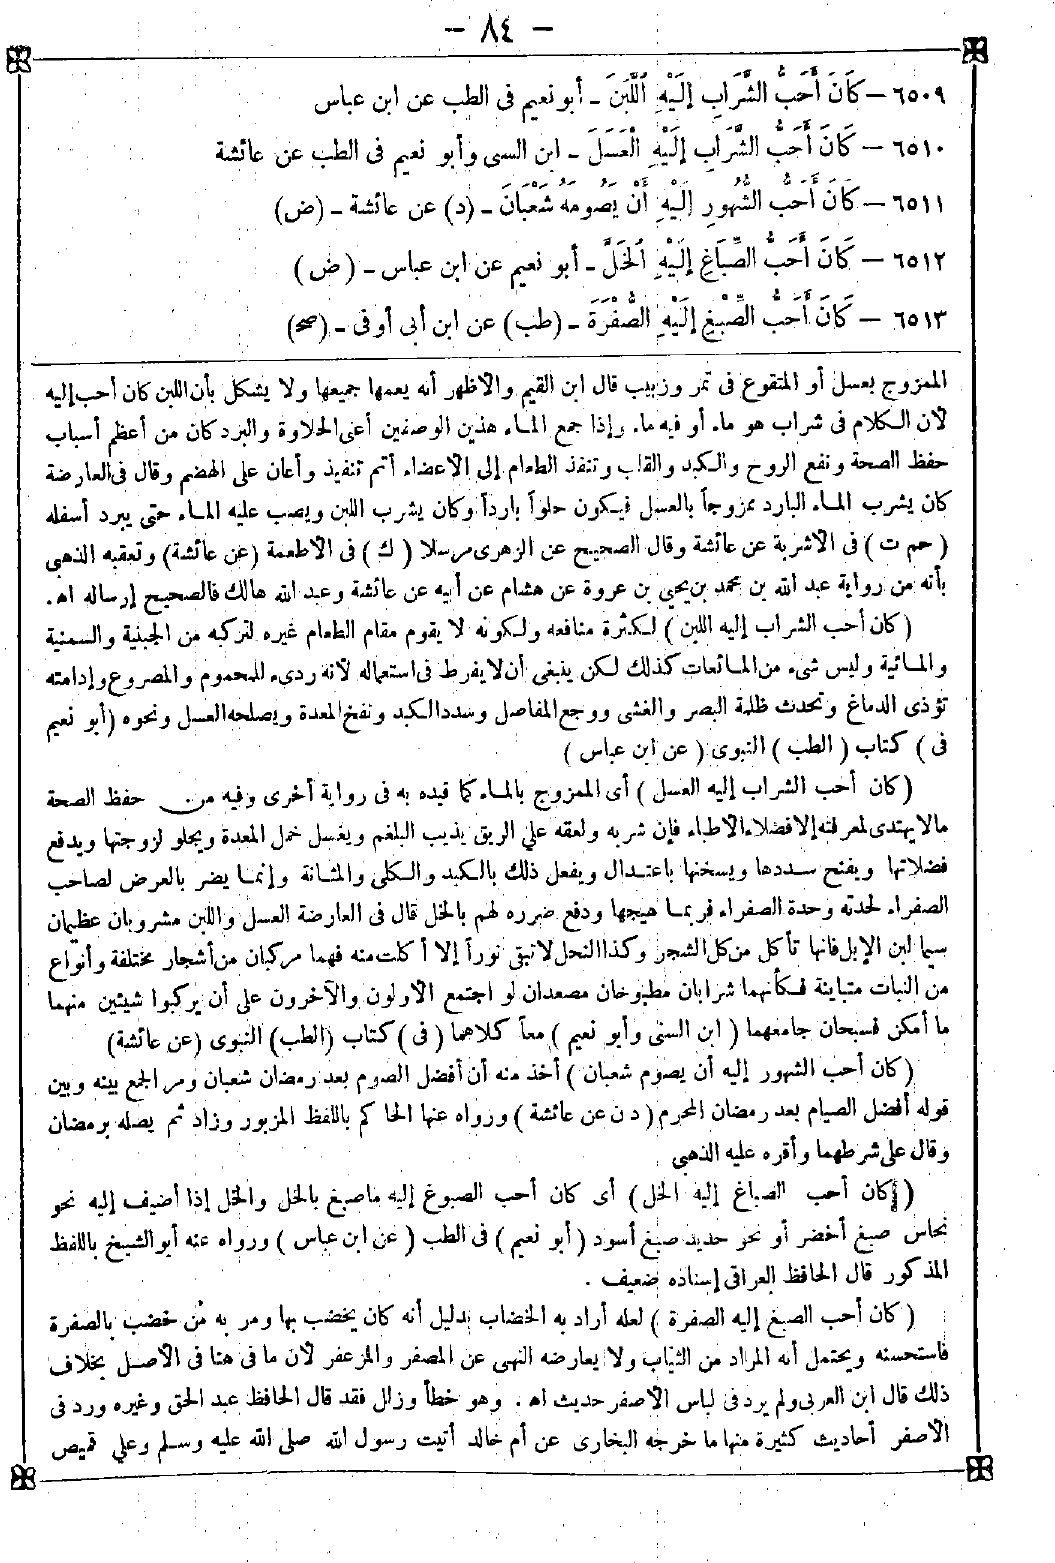 - ٨٤ -
٦٥٠٩ - كَانَ أَحَبُّ الشَّرَابِ إِلَيْهِ اللَّبَنَ - أبو نعيم فى الطب عن ابن عباس
٦٥١٠ - كَانَ أَحَبُّ الشَّرَابِ إِلَيْهِ الْعَسَلَ - ابن السى وأبو نعيم فى الطب عن عائشة
٦٥١١ - كَانَ أَحَبُّ الشُّهُورِ إِلَيْهِ أَنْ يَصُومَهُ شَعْبَانَ - (د) عن عائشة - (ض)
٦٥١٢ - كَانَ أَحَبُّ الصِّبَاغِ إِلَيْهِ الْخَلَّ - أبو نعيم عن ابن عباس - (ض)
٦٥١٣ - كَانَ أَحَبُّ الصِّبْغِ إِلَيْهِ الصُّفْرَةَ - (طب) عن ابن أبى أوفى - (صح)
الممزوج بعسل أو المنقوع فى تمر وزبيب قال ابن القيم والأظهر أنه يعمها جميعها ولا يشكل بأن اللبن كان أحب إليه
لأن الكلام فى شراب هو ماء أو فيه ماء وإذا جمع الماء هذين الوصفين أعنى الحلاوة والبرد كان من أعظم أسباب
حفظ الصحة ونفع الروح والكبد والقلب وتنفذ الطعام إلى الأعضاء أتم تنفيذ وأعان على الهضم وقال فى العارضة
كان يشرب الماء البارد ممزوجاً بالعسل فيكون حلواً بارداً وكان يشرب اللبن ويصب عليه الماء حتى يبرد أسفله
(حم ت) فى الأشربة عن عائشة وقال الصحيح عن الزهرى مرسلا (ك) فى الأطعمة (عن عائشة) وتعقبه الذهبى
بأنه من رواية عبد الله بن محمد بن يحيى بن عروة عن هشام عن أبيه عن عائشة وعبد الله هالك فالصحيح إرساله اه.
(كان أحب الشراب إليه اللبن) لكثرة منافعه ولكونه لا يقوم مقام الطعام غيره لتركبه من الجبنية والسمنية
والمائية وليس شىء من المائعات كذلك لكن ينبغى أن لا يفرط فى استعماله لأنه ردىء للمحموم والمصروع وإدامته
تؤذى الدماغ وتحدث ظلمة البصر والغشى ووجع المفاصل وسدد الكبد ونفخ المعدة ويصلحه العسل ونحوه (أبو نعيم
فى) كتاب (الطب) النبوى (عن ابن عباس)
(كان أحب الشراب إليه العسل) أى الممزوج بالماء كما قيده به فى رواية أخرى وفيه من حفظ الصحة
مالا يهتدى لمعرفته إلا فضلاء الأطباء فإن شربه ولعقه على الريق يذيب البلغم ويغسل خمل المعدة ويجلو لزوجتها ويدفع
فضلاتها ويفتح سددها ويسخنها باعتدال ويفعل ذلك بالكبد والكلى والمثانة وإنما يضر بالعرض لصاحب
الصفراء لحدته وحدة الصفراء فربما هيجها ودفع ضرره لهم بالخل قال فى العارضة العسل واللبن مشروبان عظيمان
سيما لبن الإبل فانها تأكل من كل الشجر وكذا النحل لا تبقى نوراً إلا أكلت منه فهما مركبان من أشجار مختلفة وأنواع
من النبات متباينة فكأنهما شرابان مطبوخان مصعدان لو اجتمع الأولون والآخرون على أن يركبوا شيئين منهما
ما أمكن فسبحان جامعهما (ابن السنى وأبو نعيم) معاً كلاهما (فى) كتاب (الطب) النبوى (عن عائشة)
(كان أحب الشهور إليه أن يصوم شعبان) أخذ منه أن أفضل الصوم بعد رمضان شعبان ومر الجمع بينه وبين
قوله أفضل الصيام بعد رمضان المحرم (د ن عن عائشة) ورواه عنها الحاكم باللفظ المزبور وزاد ثم يصله برمضان
وقال على شرطهما وأقره عليه الذهبى
(كان أحب الصباغ إليه الخل) أى كان أحب الصبوغ إليه ماصبغ بالخل والخل إذا أضيف إليه نحو
نحاس صبغ أخضر أو نحو حديد صبغ أسود (أبو نعيم) فى الطب (عن ابن عباس) ورواه عنه أبو الشيخ باللفظ
المذكور قال الحافظ العراقى إسناده ضعيف.
(كان أحب الصبغ إليه الصفرة) لعله أراد به الخضاب بدليل أنه كان يخضب بها ومر به مَن خضب بالصفرة
فاستحسنه ويحتمل أنه المراد من الثياب ولا يعارضه النهى عن المصفر والمزعفر لأن ما فى هنا فى الأصل بخلاف
ذلك قال ابن العربى ولم يرد فى لباس الأصفر حديث اه. وهو خطأ وزلل فقد قال الحافظ عبد الحق وغيره ورد فى
الأصفر أحاديث كثيرة منها ما خرجه البخارى عن أم خالد أتيت رسول الله صلى الله عليه وسلم وعلي قميص